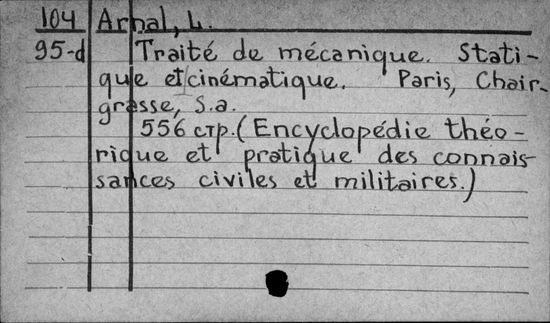 104 Arnal, L.
95-d Traité de mécanique. Stati-
que et cinématique. Paris, Chair-
grasse, S.a.
556 стр. (Encyclopédie théo-
rique et pratique des connais-
sances civiles et militaires.)